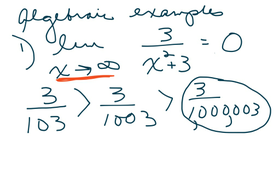 algebraic examples
1) lim 3/(x²+3) = 0
x→∞
3/103 > 3/1003 > 3/1000,003